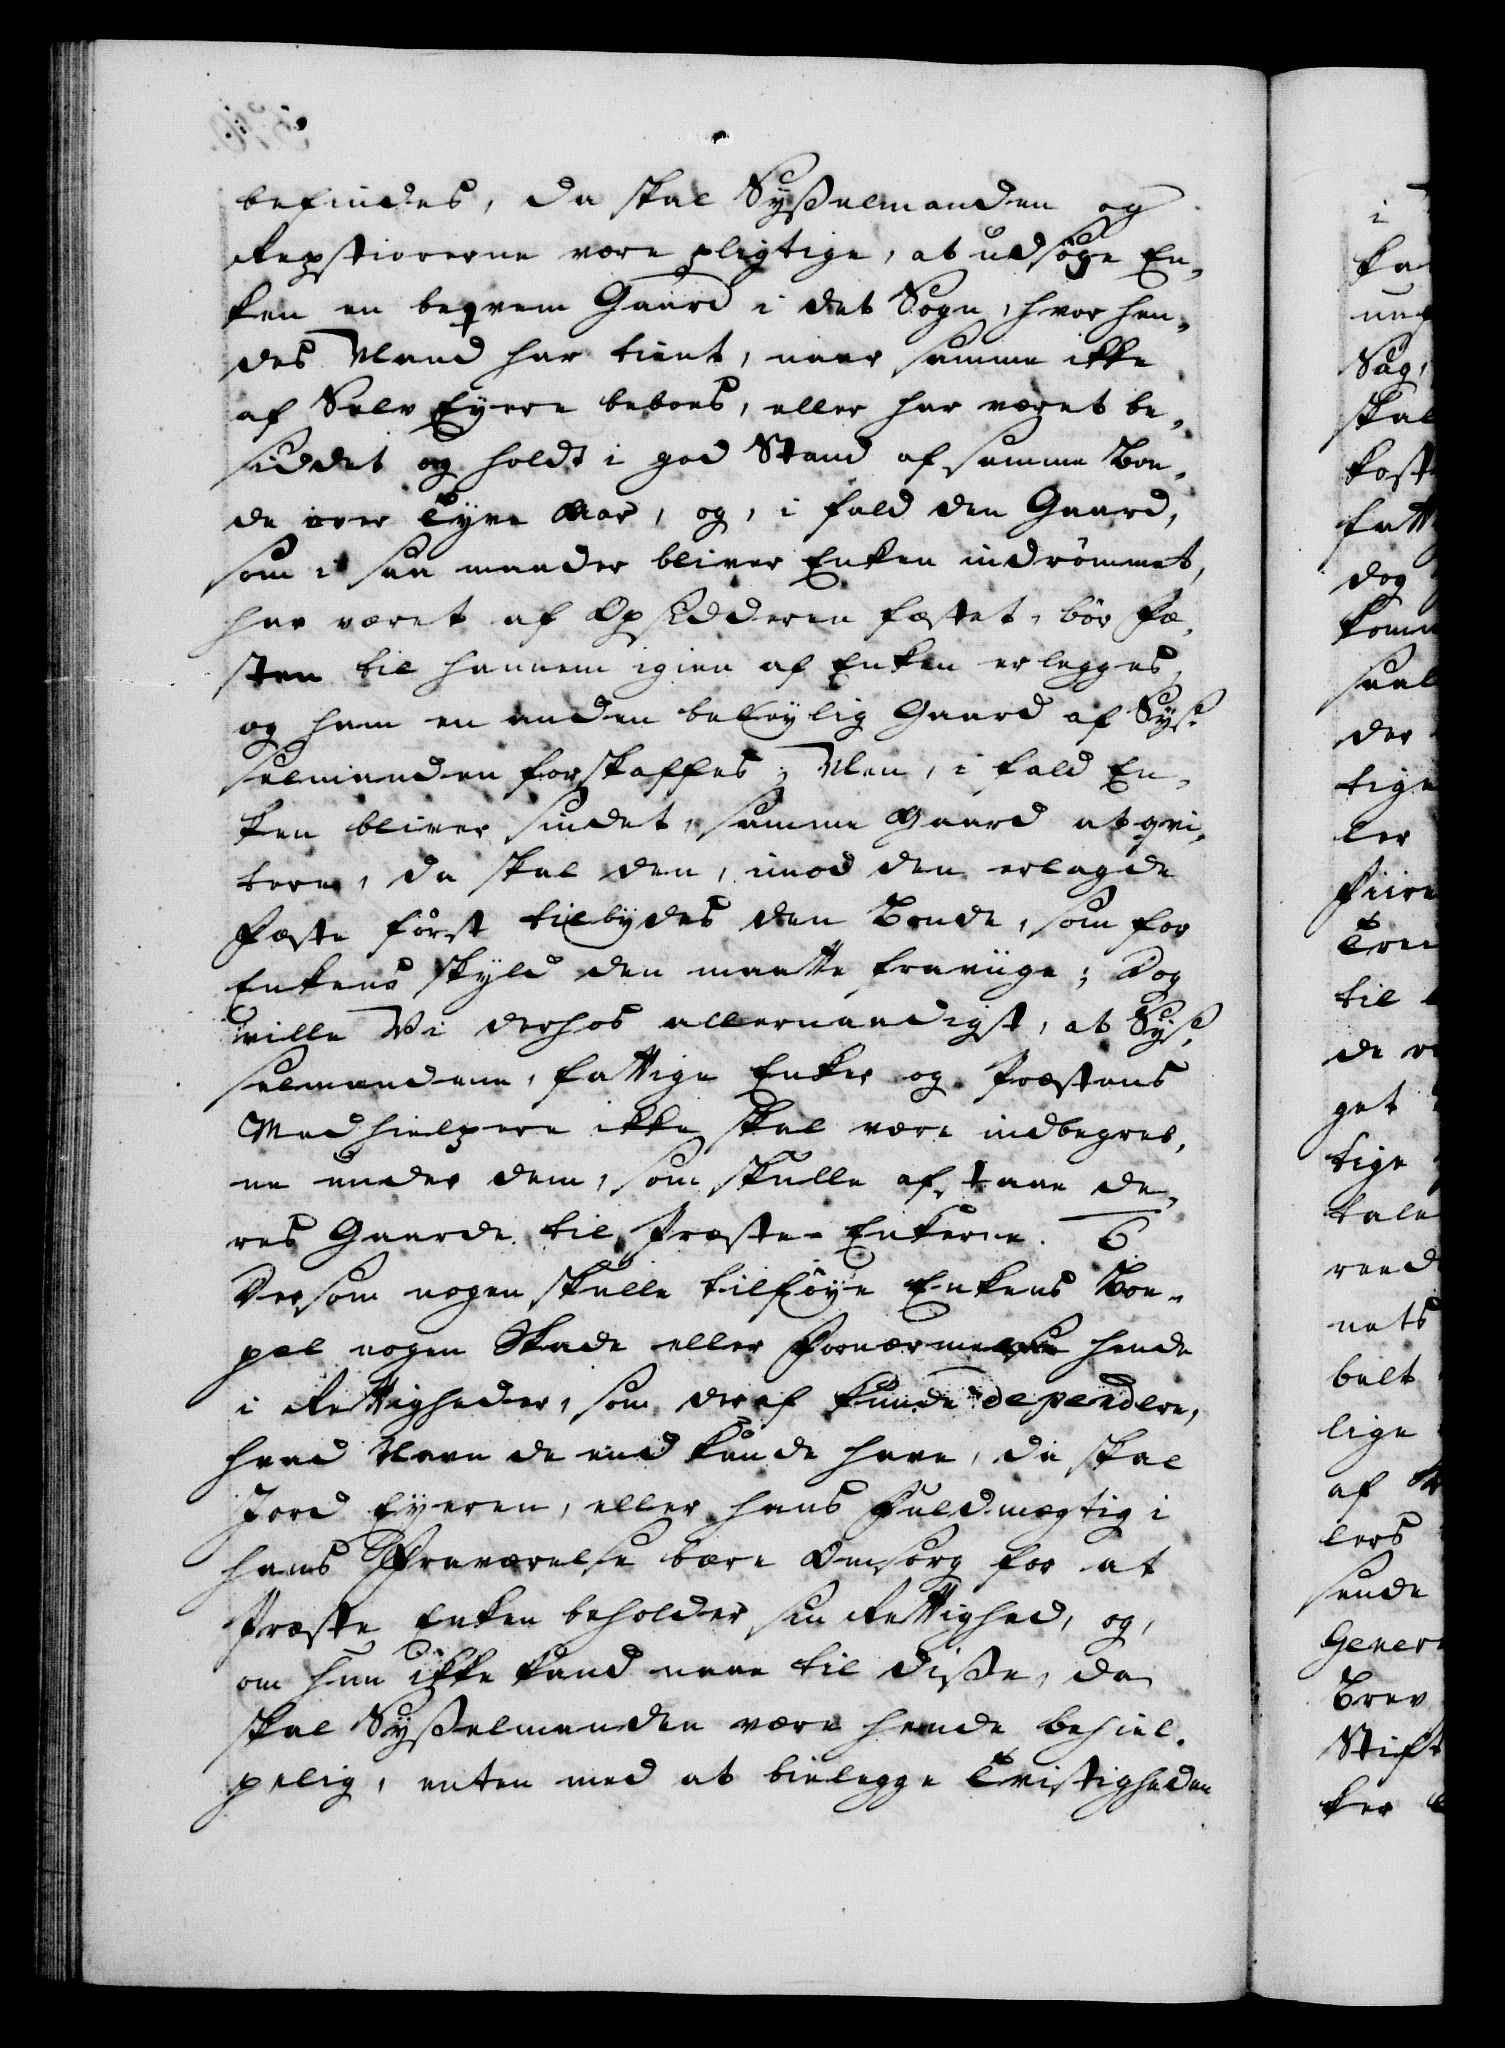 befindes, da skal Sysselmanden og
Repstiorerne være pligtige, at udsøge En-
ken en beqvem Gaard i det Sogn, hvor hen-
des Mand har tient, naar samme ikke
af Selv Eyere beboes, eller har været be-
siddet og holdt i god Stand af samme Bon-
de over Tyve Aar, og, i fald den Gaard,
som i saa maader bliver Enken indrømmet,
har været af Opsidderen fæstet, bør Fæ-
sten til hannem igien af Enken erlegges,
og ham en anden beleylig Gaard af Sys-
selmanden forskaffes; Men, i fald En-
ken bliver sindet, samme Gaard at qvi-
tere, da skal den, imod den erlagde
Fæste først tilbydes den Bonde, som for
Enkens skyld den maatte fravige; Dog
ville Vi derhos allernaadigst, at Sys-
selmandene, fattige Enker og Præstens
Medhielpere ikke skal være indbegreb-
ne under dem, som skulle afstaae de-
res Gaarde til Præste-Enkerne. 6
Dersom nogen skulle tilføye Enkens Boe-
pæl nogen Skade eller Fornærmelse hende
i Rettigheder, som deraf kunde dependere,
hvad Navn de end kunde have, da skal
Jord Eyeren, eller hans Fuldmægtig i
hans Fraværelse bære Omsorg for at
Præste Enken beholder sin Rettighed, og,
om hun ikke kand naae til disse, da
skal Sysselmanden være hende behiel-
pelig, enten med at bielegge Tvistigheden